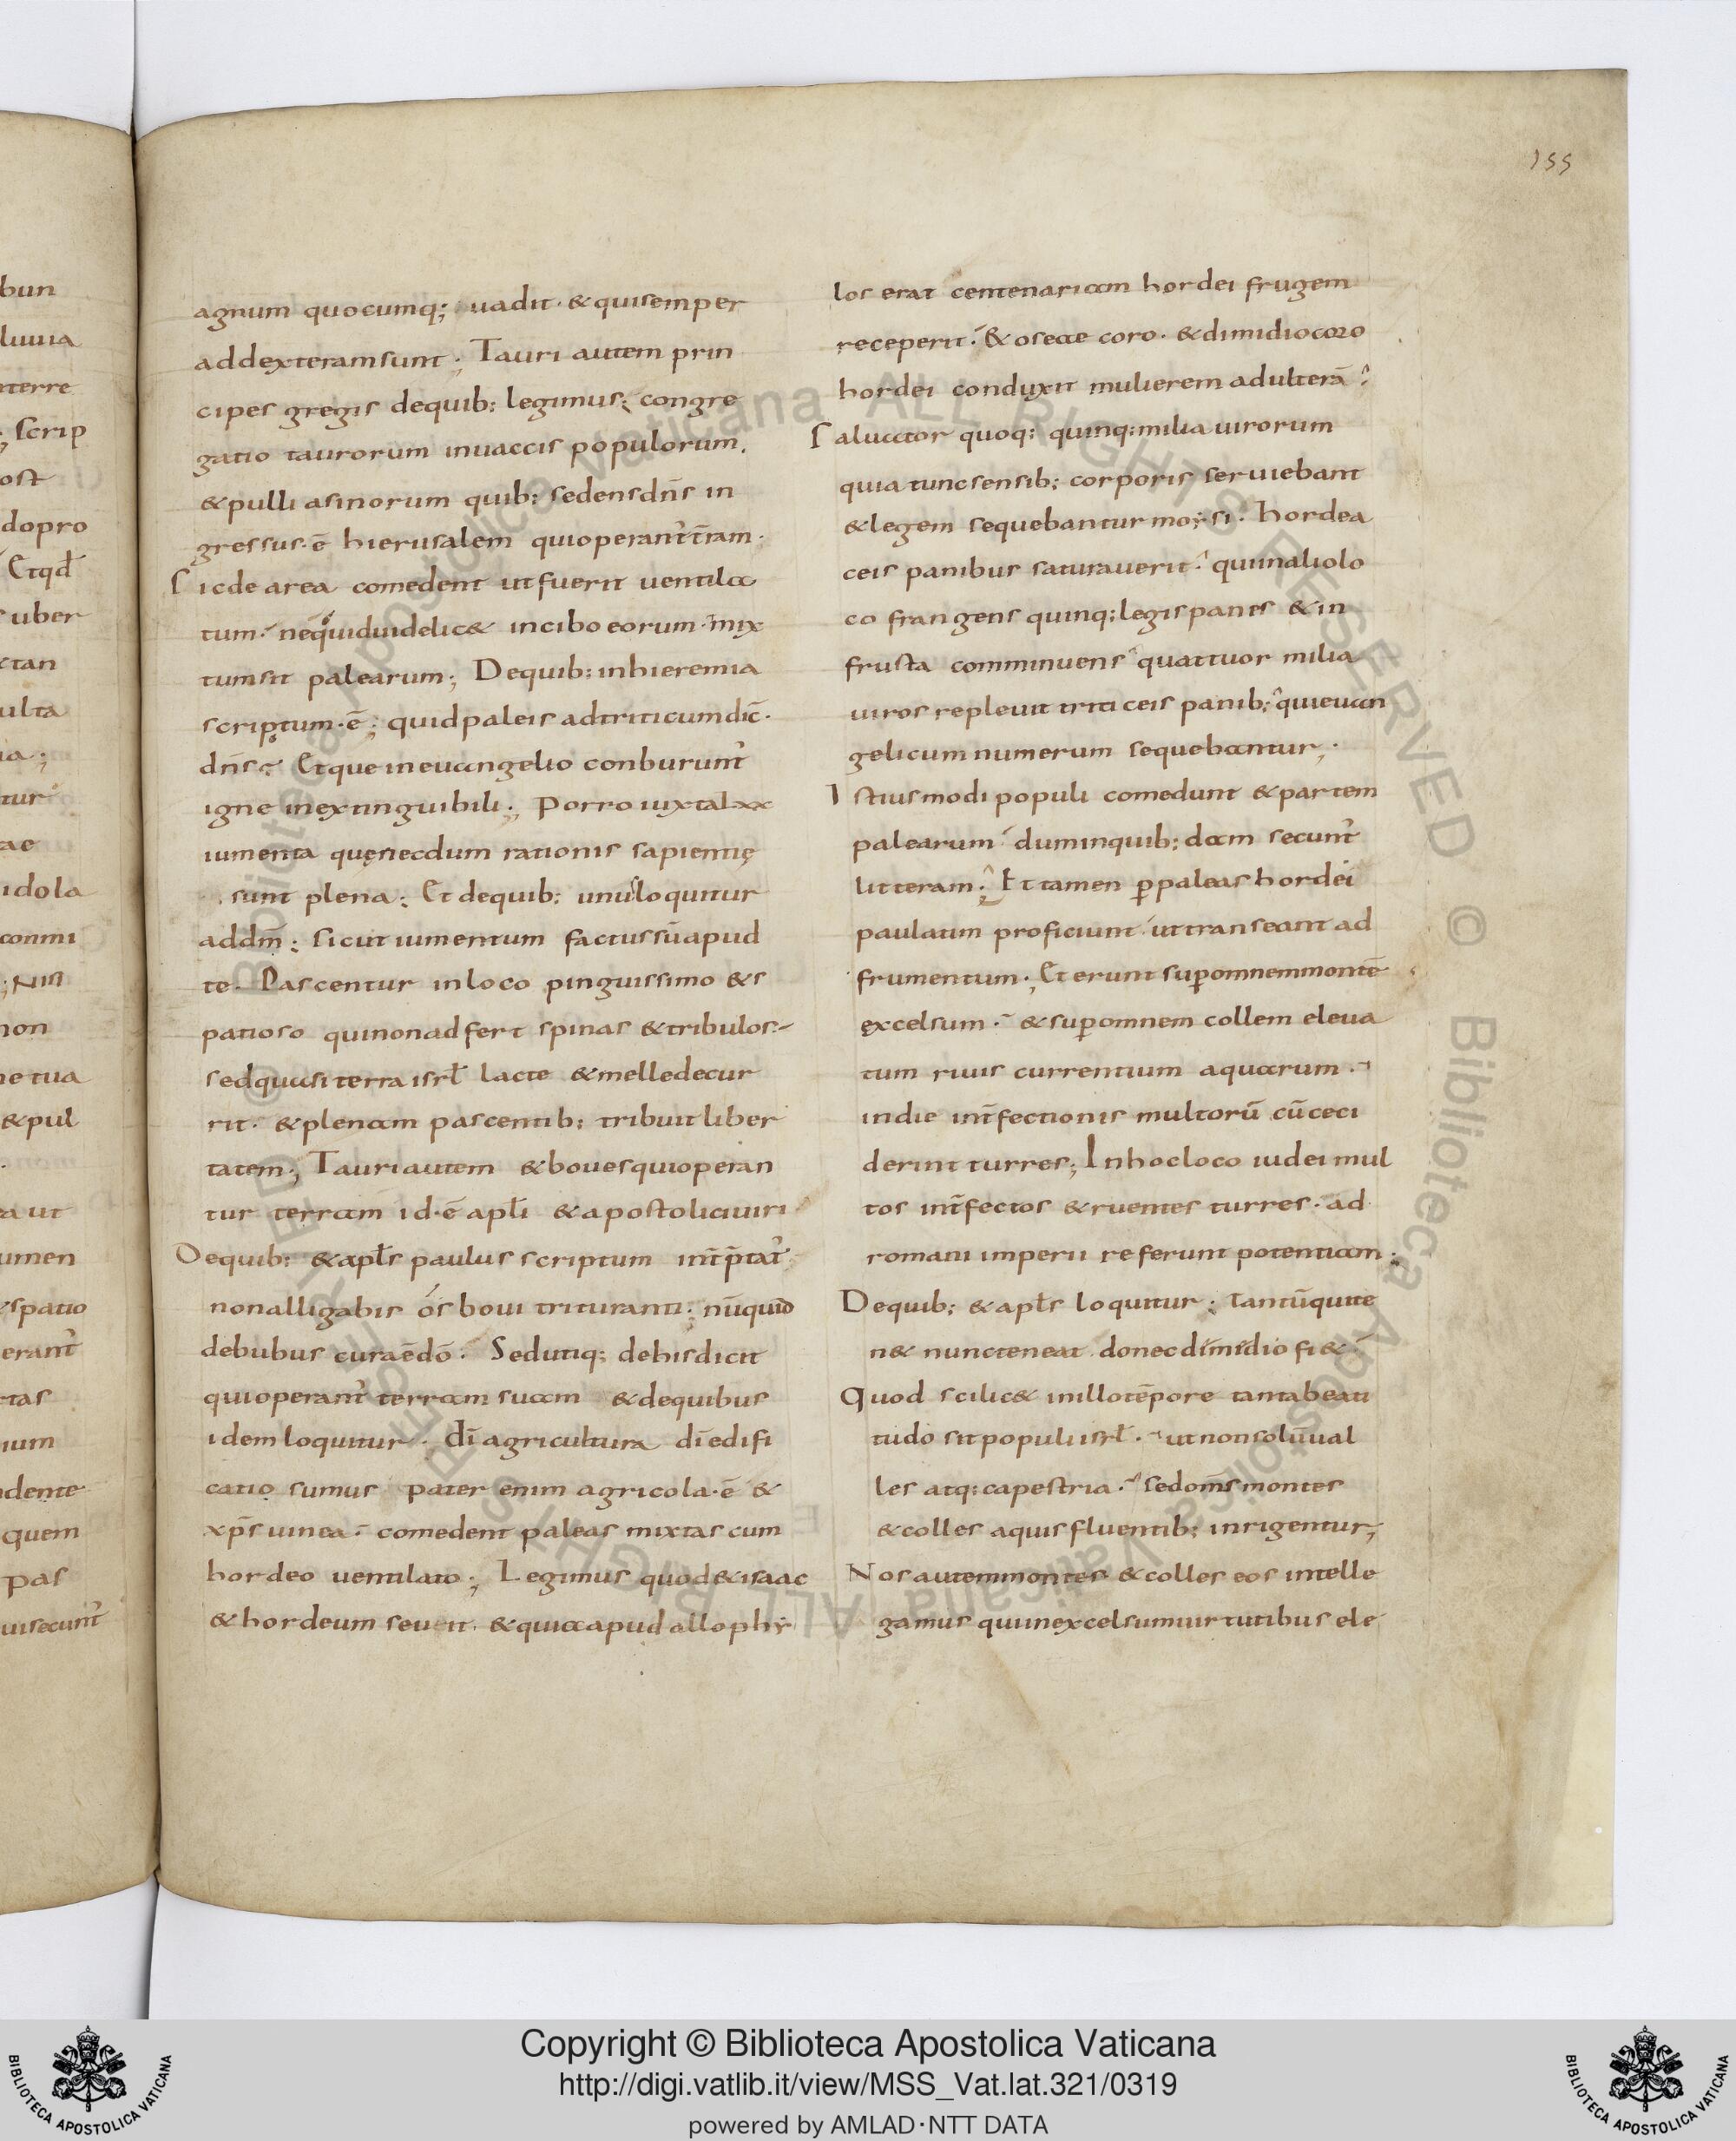 155
agnum quocumq; uadit · & quisemper
addexteramsunt ; Tauri autem prin
cipes gregis dequib; legimus; congre
gatio taurorum inuaccis populorum.
& pulli asinorum quib; sedensdn̄s in
gressus · ē hierusalem quioperant̃ t̄ram ·
Sicde area comedent ut fuerit uentila
tum · nequiduidelic& incibo eorum · mix
tumsit palearum ; Dequib; inhieremia
scriptum · ē ; quidpaleis adtriticumdic̄ ·
dn̄s ; Etque ineuangelio conburunt̃
igne inextinguibili ; Porro iuxtalxx
iumenta quęnecdum rationis sapientię
sunt plena ; Et dequib; unus loquitur
addm̄ ; sicut iumentum factussūapud
te · Pascentur inloco pinguissimo &s
patioso quinonadfert spinas &tribulos ·
sedquasiterra isrł lacte &melledecur
rit · &plenam pascentib; tribuit liber
tatem ; Tauriautem &bouesquioperan
tur terram id · ē apłi &apostoliciuiri
Dequib; &apłs paulus scriptum int̄p̄tat̃
nonalligabis ós boui trituranti ; nūquid
debubus curaēdō · Sedutiq; dehisdicit
quioperant̃ terram suam &dequibus
idemloquitur · dī agricultura dīedifi
catio sumus pater enim agricola · ē &
xp̄s uinea · comedent paleas mixtas cum
hordeo uentilato ; Legimus quod&isaac
&hordeum seuerit &quiaapudallophy
los erat centenariam hordei frugem
receperit · &oseae coro · &dimidiocoro
hordei conduxit mulierem adulterā
Saluator quoq; quinq; milia uirorum
quia tuncsensib; corporis seruiebant
&legem sequebanturmoysi · hordea
ceis panibus saturauerit · quiinalio lo
co frangens quinq; legispanes &in
frusta comminuens quattuor milia
uiros repleuit triticeis panib; quieuan
gelicum numerum sequebantur ;
Istiusmodi populi comedunt &partem
palearum duminquib; dam secunt̃
litteram ; Et tamen ꝑpaleas hordei
paulatim proficiunt uttranseant ad
frumentum ; Et erunt suꝑomnemmontē
excelsum · &suꝑomnem collem eleua
tum riuis currentium aquarum ·
indie int̄fectionis multorū cūceci
derint turres ; Inhocloco iudei mul
tos int̄fectos &ruentes turres · ad
romani imperii referunt potentiam ;
Dequib; &apłs loquitur ; Tantūquite
n& nuncteneat donecdimidio fi&
Quod scilic& inillotēpore tantabeati
tudo sitpopuliisrł · utnonsolūual
les atq; capestria · sedom̄s montes
&colles aquisfluentib; inrigentur ;
Nosautemmontes &colles eos intelle
gamus quiinexcelsumuirtutibus ele
bun
luuia
nterre
; scrip
ost
dopro
Etqđ
s uber
tan
ulta
ia ;
tur
ae
idola
conmi
; Nisi
non
ne tua
&pul
a ut
umen
spatio
erant̃
tas
ium
dente
quem
pas
uisecunt̃
© Biblioteca Apostolica Vaticana ALL RIGHTS RESERVED © Biblioteca Apostolica Vaticana ALL RIGHTS RESERVED
BIBLIOTECA APOSTOLICA VATICANA
Copyright © Biblioteca Apostolica Vaticana
http://digi.vatlib.it/view/MSS_Vat.lat.321/0319
powered by AMLAD·NTT DATA
BIBLIOTECA APOSTOLICA VATICANA